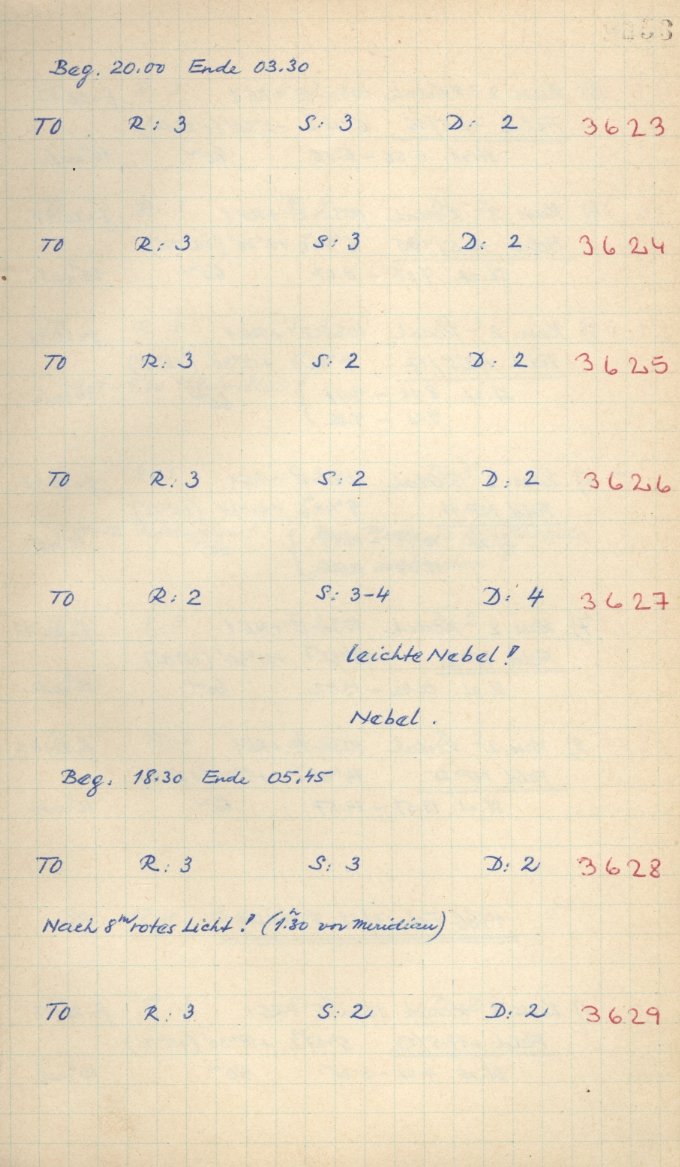 Beg. 20.00 Ende 03.30
TO R: 3 S: 3 D: 2 3623
TO R: 3 S: 3 D: 2 3624
TO R: 3 S: 2 D: 2 3625
TO R: 3 S: 2 D: 2 3626
TO R: 2 S: 3-4 D: 4 3627
leichte Nebel!
Nebel.
Beg. 18.30 Ende 05.45
TO R: 3 S: 3 D: 2 3628
Nach 8ᵐ rotes Licht! (1.30 vor Meridian)
TO R: 3 S: 2 D: 2 3629